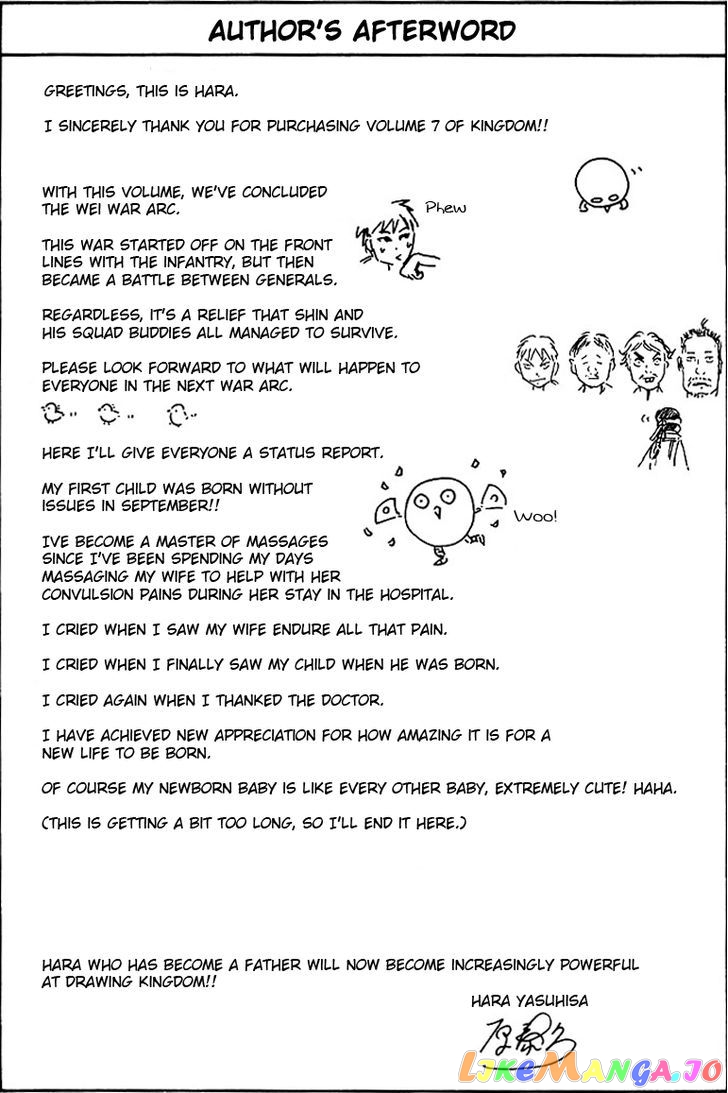 AUTHOR'S AFTERWORD
GREETINGS, THIS IS HARA.
I SINCERELY THANK YOU FOR PURCHASING VOLUME 7 OF KINGDOM!!
WITH THIS VOLUME, WE'VE CONCLUDED
THE WEI WAR ARC.
Phew
THIS WAR STARTED OFF ON THE FRONT
LINES WITH THE INFANTRY, BUT THEN
BECAME A BATTLE BETWEEN GENERALS.
REGARDLESS, IT'S A RELIEF THAT SHIN AND
HIS SQUAD BUDDIES ALL MANAGED TO SURVIVE.
PLEASE LOOK FORWARD TO WHAT WILL HAPPEN TO
EVERYONE IN THE NEXT WAR ARC.
HERE I'LL GIVE EVERYONE A STATUS REPORT.
MY FIRST CHILD WAS BORN WITHOUT
ISSUES IN SEPTEMBER!!
Woo!
IVE BECOME A MASTER OF MASSAGES
SINCE I'VE BEEN SPENDING MY DAYS
MASSAGING MY WIFE TO HELP WITH HER
CONVULSION PAINS DURING HER STAY IN THE HOSPITAL.
I CRIED WHEN I SAW MY WIFE ENDURE ALL THAT PAIN.
I CRIED WHEN I FINALLY SAW MY CHILD WHEN HE WAS BORN.
I CRIED AGAIN WHEN I THANKED THE DOCTOR.
I HAVE ACHIEVED NEW APPRECIATION FOR HOW AMAZING IT IS FOR A
NEW LIFE TO BE BORN.
OF COURSE MY NEWBORN BABY IS LIKE EVERY OTHER BABY, EXTREMELY CUTE! HAHA.
(THIS IS GETTING A BIT TOO LONG, SO I'LL END IT HERE.)
HARA WHO HAS BECOME A FATHER WILL NOW BECOME INCREASINGLY POWERFUL
AT DRAWING KINGDOM!!
HARA YASUHISA
原泰久
LIKEMANGA.IO